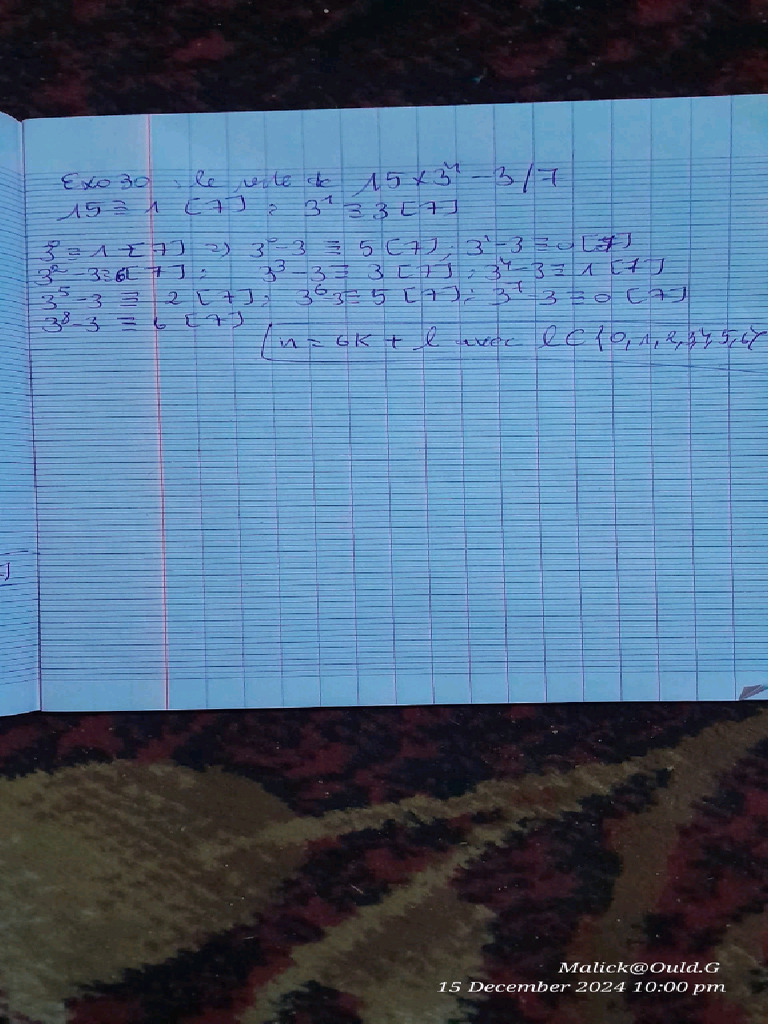 Exo 30 : le reste de 15 × 3ⁿ - 3 / 7
15 ≡ 1 [7] ; 3¹ ≡ 3 [7]
3⁰ ≡ 1 [7] => 3⁰-3 ≡ 5 [7] ; 3¹-3 ≡ 0 [7]
3²-3 ≡ 6 [7] ; 3³-3 ≡ 3 [7] ; 3⁴-3 ≡ 1 [7]
3⁵-3 ≡ 2 [7] ; 3⁶-3 ≡ 5 [7] ; 3⁷-3 ≡ 0 [7]
3⁸-3 ≡ 6 [7]
n = 6K + l avec l ∈ {0,1,2,3,4,5,6}
Malick@Ould.G
15 December 2024 10:00 pm